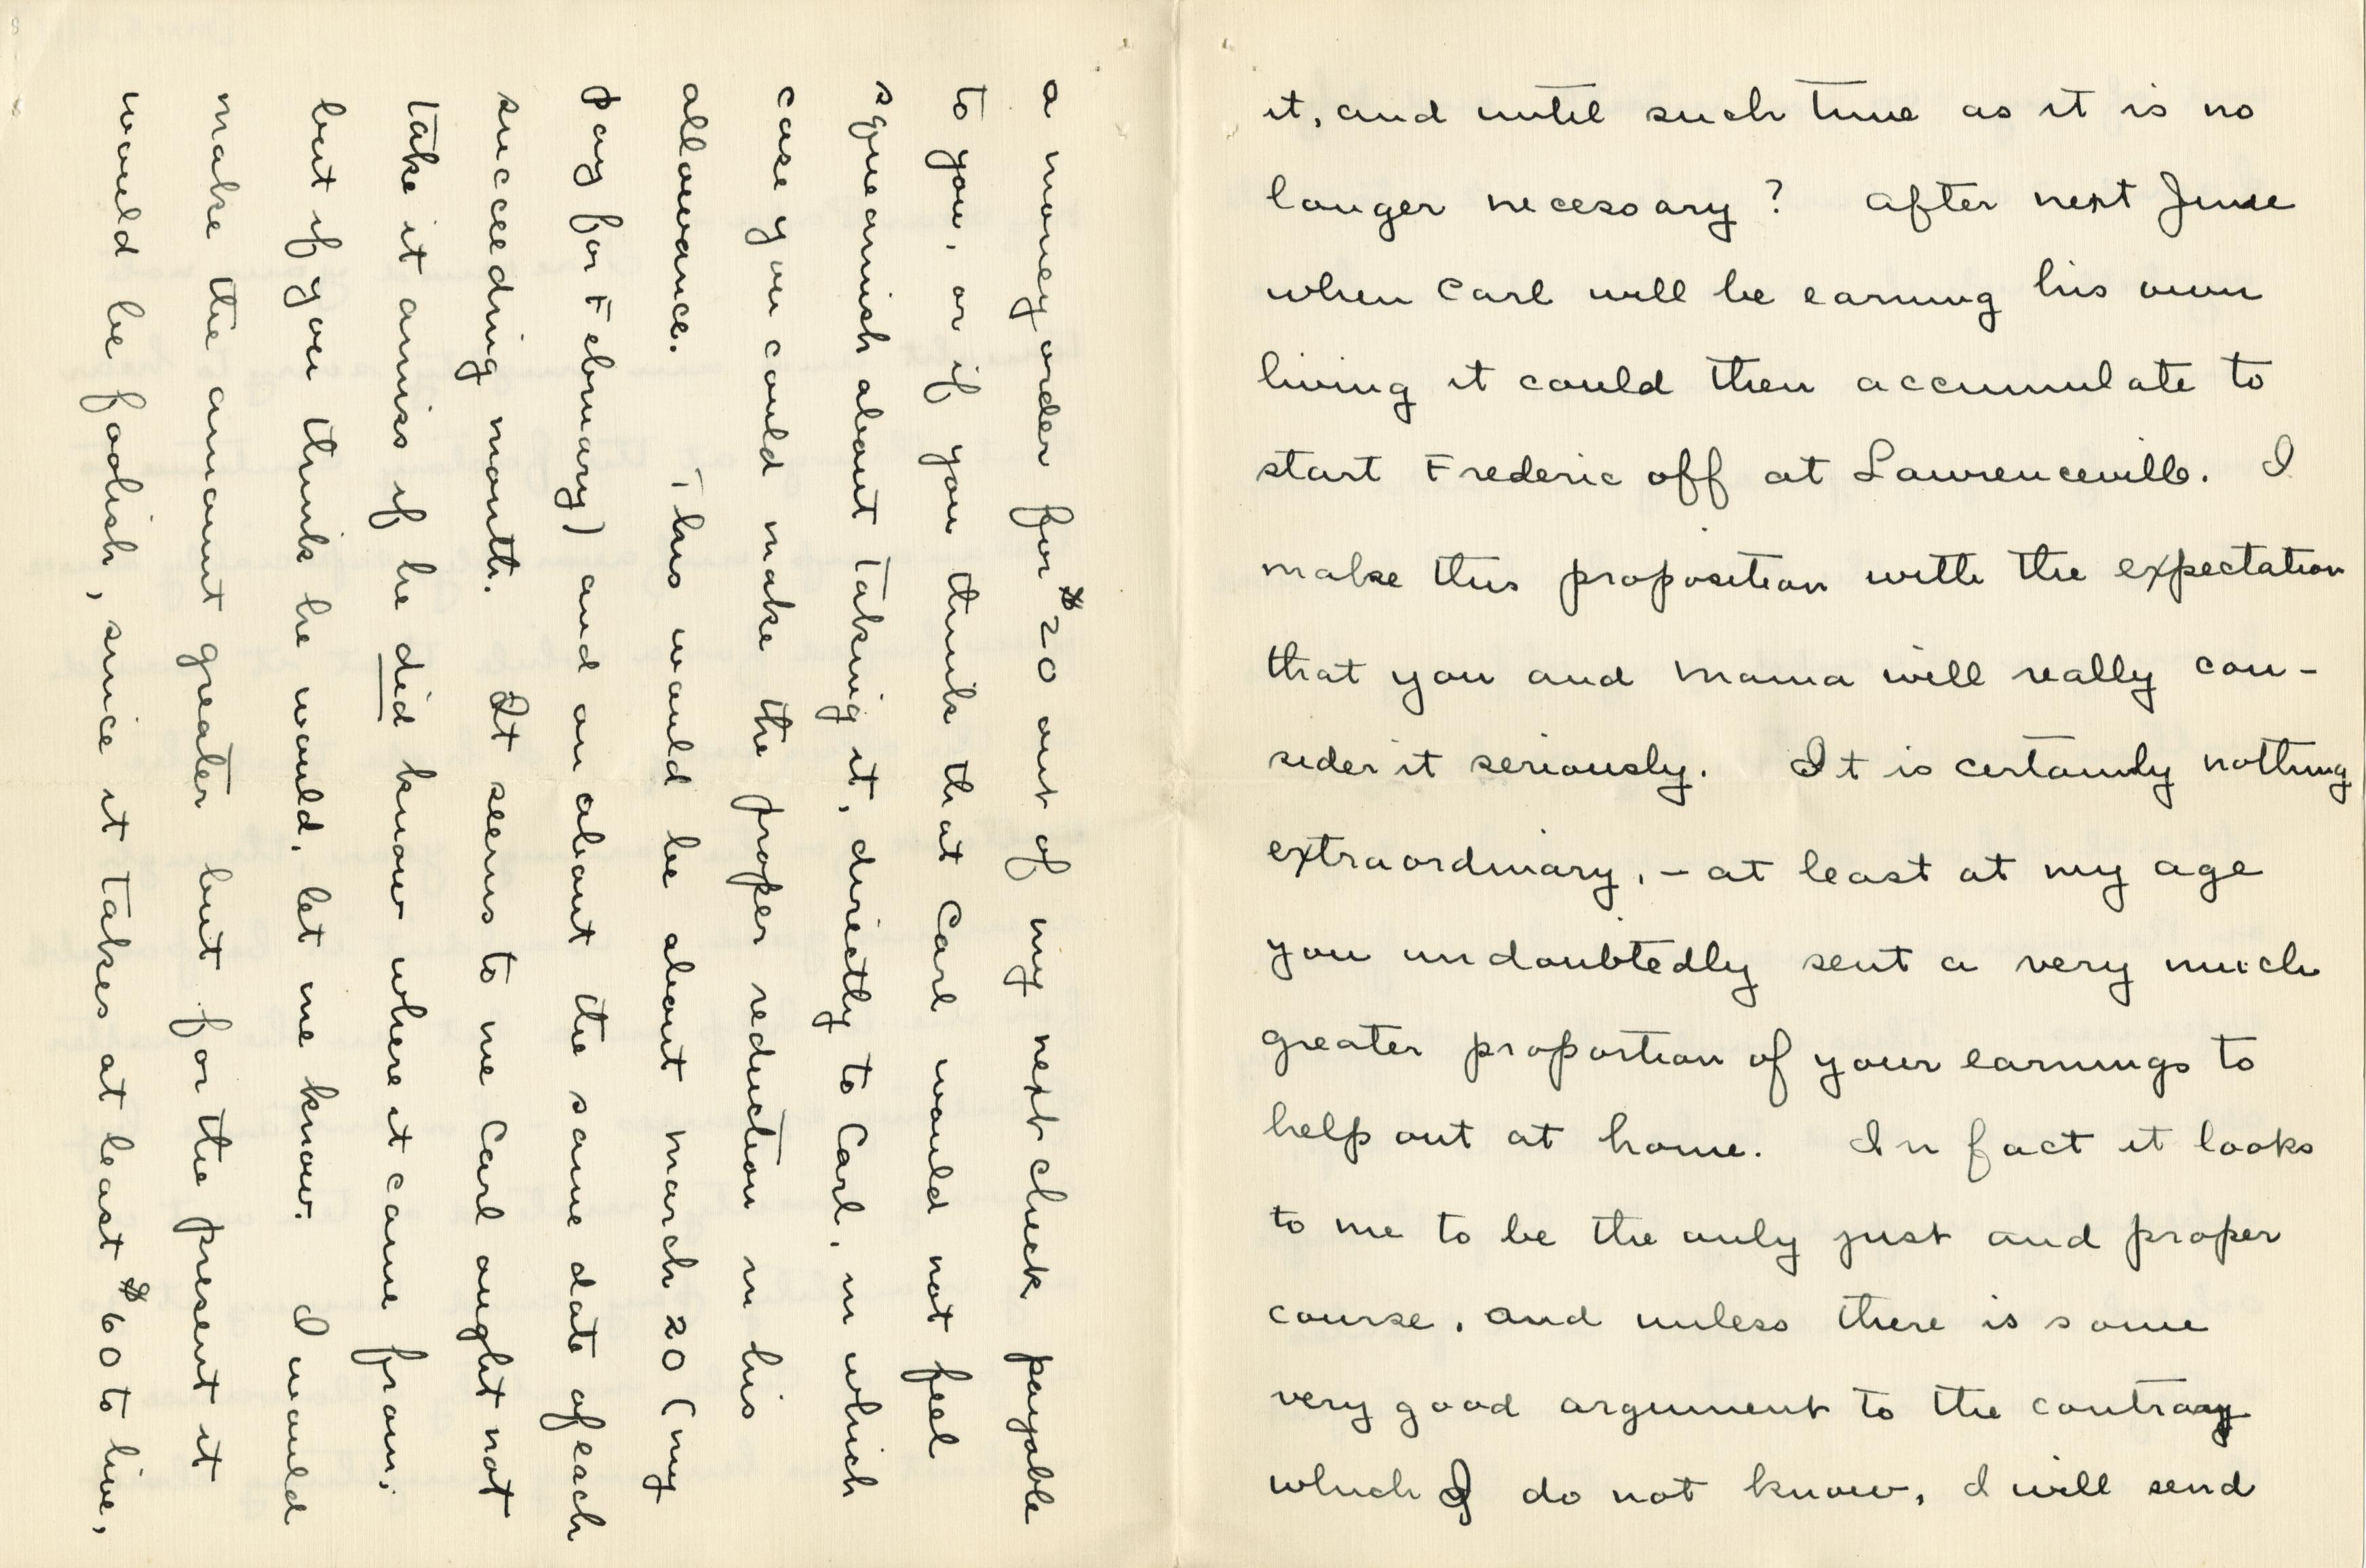 it, and until such time as it is no
longer necessary? After next June
when Carl will be earning his own
living it could then accumulate to
start Frederic off at Lawrenceville. I
make this proposition with the expectation
that you and Mama will really con-
sider it seriously. It is certainly nothing
extraordinary, - at least at my age
you undoubtedly sent a very much
greater proportion of your earnings to
help out at home. In fact it looks
to me to be the only just and proper
course, and unless there is some
very good argument to the contrary
which I do not know, I will send
a money order for $20 out of my next check payable
to you, or if you think that Carl would not feel
squeamish about taking it, directly to Carl, in which
case you could make the proper reduction in his
allowance. This would be about March 20 (my
pay for February) and on about the same date of each
succeeding month. It seems to me Carl ought not
take it amiss if he did know where it came from;
but if you think he would, let me know. I would
make the amount greater but for the present it
would be foolish, since it takes at least $60 to live,